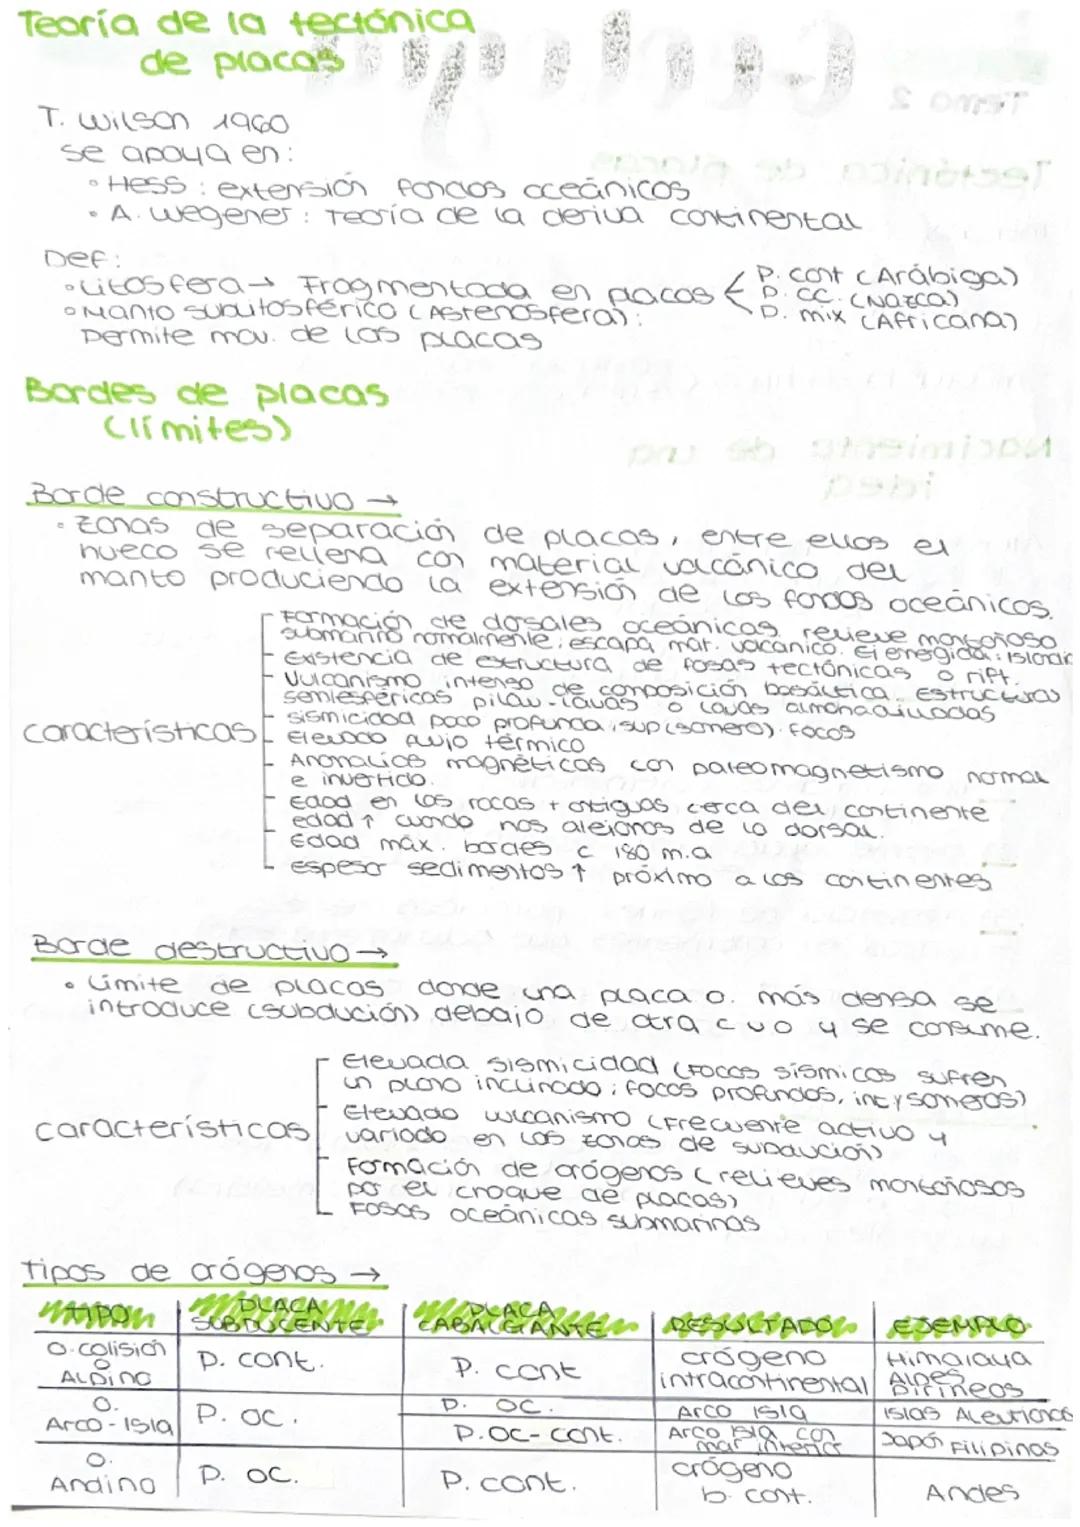 Teoría de la tectónica
de placas
T. Wilson 1960
se apoya en:
• Hess: extensión fondos oceánicos
• A. Wegener: Teoría de la deriva continental
Def:
• Litosfera → Fragmentada en placas
P. cont (Arábiga)
P. oc. (Nazca)
P. mix (Africana)
• Manto sublitosférico (Astenosfera):
Permite mov. de las placas
Bordes de placas
(límites)
Borde constructivo →
• Zonas de separación de placas, entre ellos el
hueco se rellena con material volcánico del
manto produciendo la extensión de los fondos oceánicos.
características
- Formación de dorsales oceánicas, relieve montañoso
submarino normalmente; escapa mat. volcánico. Ej emergida: Islandia
- Existencia de estructura de fosas tectónicas o rift.
- Vulcanismo intenso de composición basáltica. Estructuras
semiesféricas pilow-lavas o lavas almohadilladas
- Sismicidad poco profunda, sup (somero). Focos
- Elevado flujo térmico
- Anomalías magnéticas con paleomagnetismo normal
e invertido.
- Edad en las rocas + antiguas cerca del continente
edad ↑ cuando nos alejamos de la dorsal.
Edad máx. bordes c 180 m.a
- espesor sedimentos ↑ próximo a los continentes
Borde destructivo →
• Límite de placas donde una placa o. más densa se
introduce (subdución) debajo de otra c u o y se consume.
características
- Elevada sismicidad (Focos sísmicos sufren
un plano inclinado; focos profundos, int y someros)
- Elevado vulcanismo (Frecuente activo y
variado en las zonas de subdución)
- Formación de orógenos (relieves montañosos
por el choque de placas)
- Fosas oceánicas submarinas
Tipos de orógenos →
TIPO PLACA SUBDUCENTE PLACA CABALGANTE RESULTADO EJEMPLO
O. colisión o Alpino P. cont. P. cont orógeno intracontinental Himalaya Alpes Pirineos
O. Arco-Isla P. oc. P. oc. Arco isla Islas Aleutianas
P. oc-cont. Arco isla con mar interior Japón Filipinas
O. Andino P. oc. P. cont. orógeno b. cont. Andes